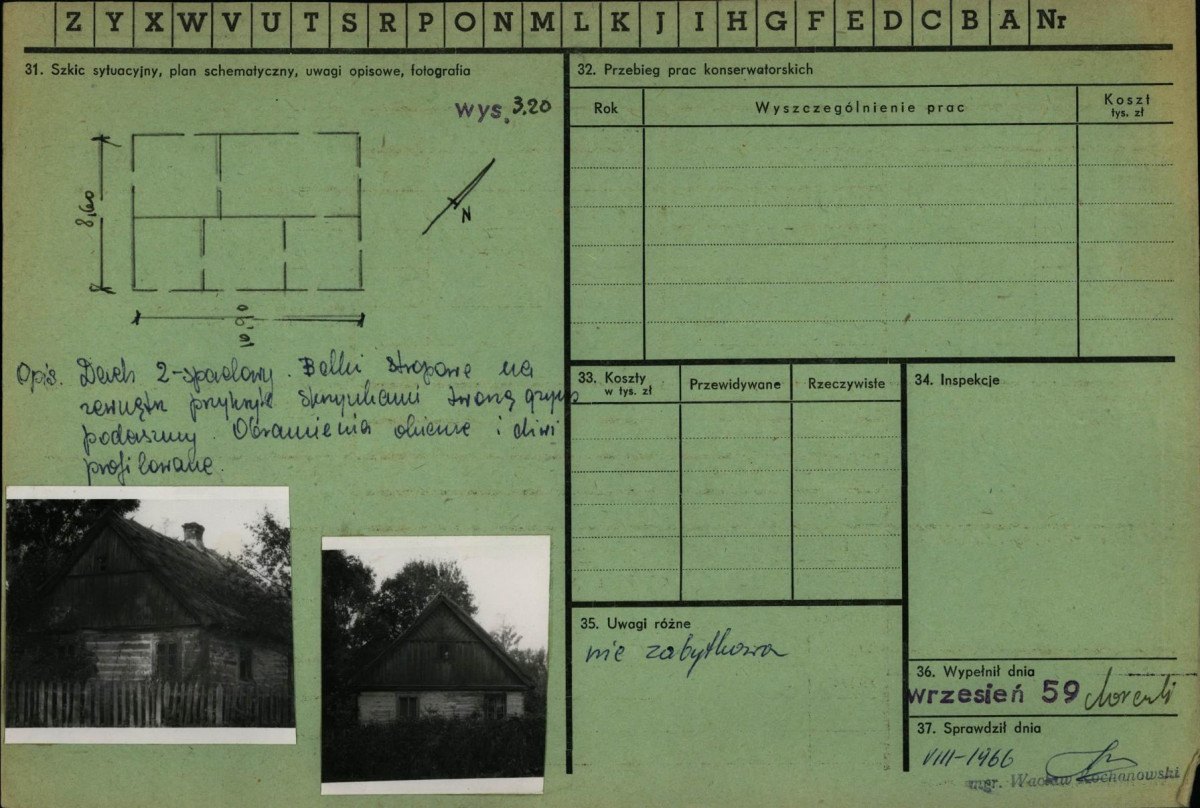 Z Y X W V U T S R P O N M L K J I H G F E D C B A Nr
31. Szkic sytuacyjny, plan schematyczny, uwagi opisowe, fotografia
wys. 3.20
8,60
N
Opis. Dach 2-spadowy. Belki stropowe na
zewnątrz przykryte skrzynkami tworzą gzyms
podaszny. Obramienia okienne i drzwi
profilowane.
32. Przebieg prac konserwatorskich
Rok
Wyszczególnienie prac
Koszt
tys. zł
33. Koszty
w tys. zł
Przewidywane
Rzeczywiste
34. Inspekcje
35. Uwagi różne
nie zabytkowa
36. Wypełnił dnia
wrzesień 59
37. Sprawdził dnia
VIII-1966
mgr. Wacław Kochanowski